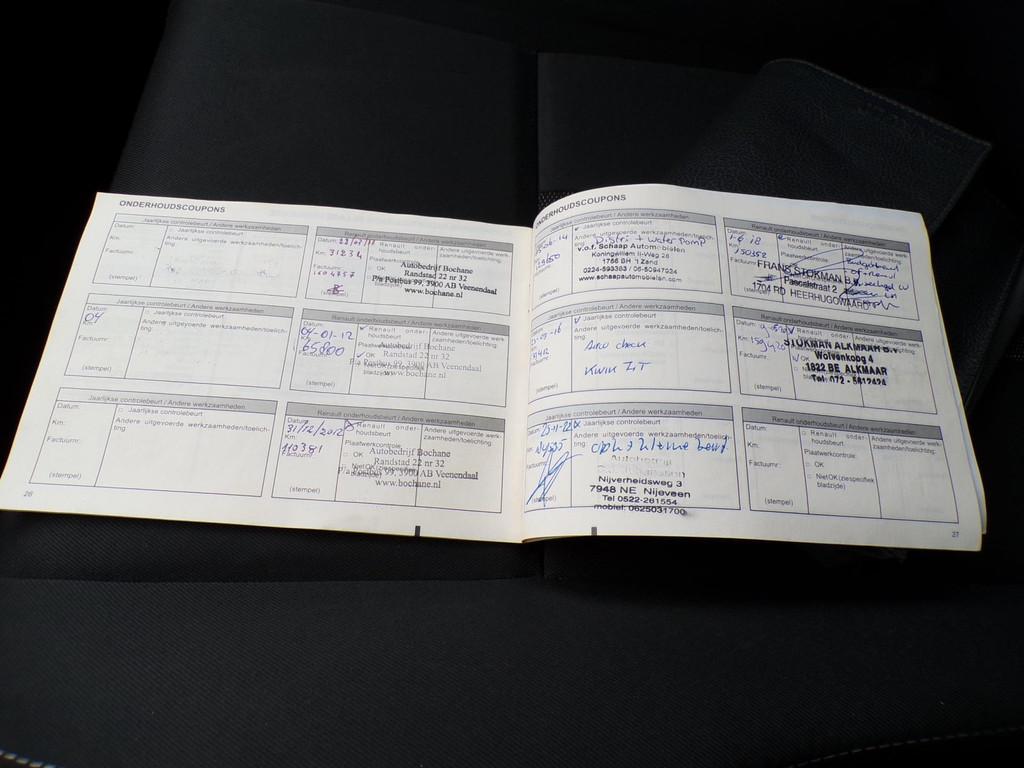 ONDERHOUDSCOUPONS
Jaarlijkse controlebeurt / Andere werkzaamheden
Datum:
□ Jaarlijkse controlebeurt
Km:
Andere uitgevoerde werkzaamheden/toelichting:
Factuurnr:
(stempel)
Renault onderhoudsbeurt / Andere werkzaamheden
Datum:
Km: 31234
Factuurnr:
Renault onderhoudsbeurt
Andere uitgevoerde werkzaamheden/toelichting:
Autobedrijf Bochane
Randstad 22 nr 32
P/a Postbus 99, 3900 AB Veenendaal
www.bochane.nl
(stempel)
Jaarlijkse controlebeurt / Andere werkzaamheden
Datum:
04
□ Jaarlijkse controlebeurt
Km:
Andere uitgevoerde werkzaamheden/toelichting:
Factuurnr:
(stempel)
Renault onderhoudsbeurt / Andere werkzaamheden
Datum:
04-01-12
Km:
65800
Factuurnr:
Renault onderhoudsbeurt
Andere uitgevoerde werkzaamheden/toelichting:
OK
Autobedrijf Bochane
Randstad 22 nr 32
P/a Postbus 99, 3900 AB Veenendaal
www.bochane.nl
(stempel)
Jaarlijkse controlebeurt / Andere werkzaamheden
Datum:
□ Jaarlijkse controlebeurt
Km:
Andere uitgevoerde werkzaamheden/toelichting:
Factuurnr:
(stempel)
Renault onderhoudsbeurt / Andere werkzaamheden
Datum:
31/12/2012
Km:
110381
Factuurnr:
Renault onderhoudsbeurt
Andere uitgevoerde werkzaamheden/toelichting:
Plaatwerkcontrole:
OK
Autobedrijf Bochane
Randstad 22 nr 32
P/a Postbus 99, 3900 AB Veenendaal
www.bochane.nl
(stempel)
26
ONDERHOUDSCOUPONS
Jaarlijkse controlebeurt / Andere werkzaamheden
Jaarlijkse controlebeurt
Distri + waterpomp
v.o.f. Schaap Automobielen
Koningwillem II-Weg 28
1756 BH 't Zand
0224-593383 / 06-50947024
www.schaapautomobielen.com
(stempel)
Renault onderhoudsbeurt / Andere werkzaamheden
Datum:
1-6 18
Km:
150352
Factuurnr:
FRANS STOKMAN B.V.
Pascalstraat 2
1704 RD HEERHUGOWAARD
(stempel)
Jaarlijkse controlebeurt / Andere werkzaamheden
Jaarlijkse controlebeurt
Andere uitgevoerde werkzaamheden/toelichting:
Airco check
Kwik Fit
(stempel)
Renault onderhoudsbeurt / Andere werkzaamheden
Datum:
Km:
Factuurnr:
OK
STOKMAN ALKMAAR B.V.
Wolvenkoog 4
1822 BE ALKMAAR
(stempel)
Jaarlijkse controlebeurt / Andere werkzaamheden
Datum:
23-11-22
Jaarlijkse controlebeurt
Andere uitgevoerde werkzaamheden/toelichting:
Nijverheidsweg 3
7948 NE Nijeveen
Tel 0522-261554
mobiel: 0625031700
(stempel)
Renault onderhoudsbeurt / Andere werkzaamheden
Datum:
□ Renault onderhoudsbeurt
Km:
Andere uitgevoerde werkzaamheden/toelichting:
Plaatwerkcontrole:
Factuurnr:
□ OK
□ NietOK(ziespecifiek bladzijde)
(stempel)
27